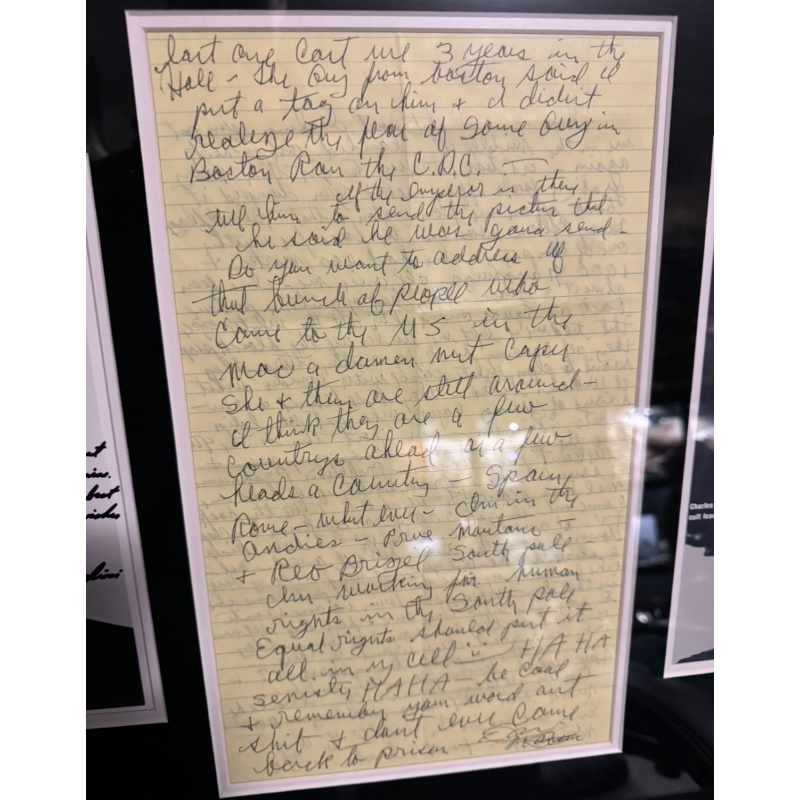 last one cost me 3 years in the
Hole - She Guy from boston said I
put a tag on him & I didn't
realize the fear of some Guy in
Boston Ran the C.D.C. —
if the Emperor is there
tell him to send the picture that
he said he was gona send -
Do you want to address
that bunch of people who
Came to the US in the
Mac a damen nut Capu
She & they are still around -
I think they are a few
Countrys ahead as a few
heads a Country - Spain
Rome - what ever - Im in the
Andies - Prue Mantans -
+ Reo Brizel South pole -
Im working for human
rights in the South pole
Equal rights should put it
all in cell HA HA
senisty HA HA - be cool
+ remember your word ant
shit & dont ever Come
back to prison -
Charles
cult lea